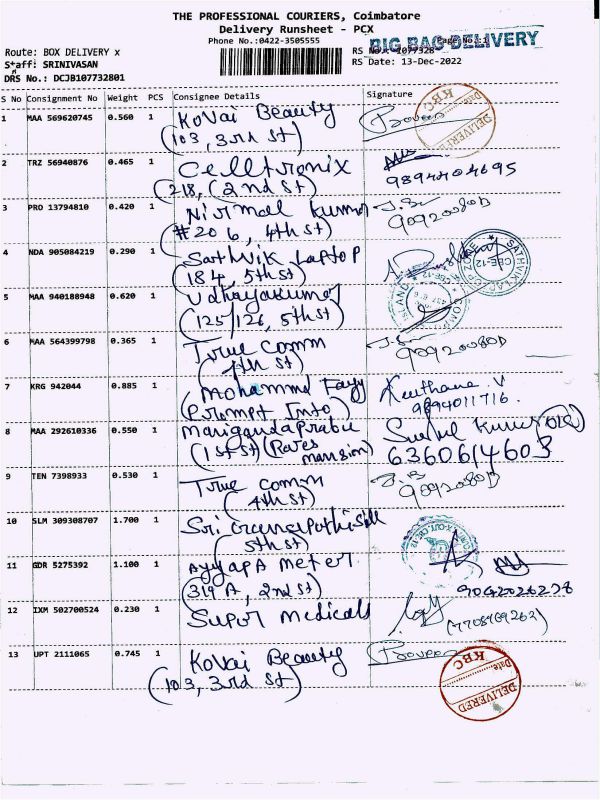 THE PROFESSIONAL COURIERS, Coimbatore
Delivery Runsheet - PCX
Phone No.:0422-3505555
BIG BAG DELIVERY
Route: BOX DELIVERY x
RS No.: 1077328
Staff: SRINIVASAN
RS Date: 13-Dec-2022
DRS No.: DCJB107732801
S No Consignment No Weight PCS Consignee Details Signature
1 MAA 569620745 0.560 1 Kovai Beauty
(103, 3rd st)
DELIVERED KBC
2 TRZ 56940876 0.465 1 Celltronix
(218, (2nd St)
3 PRO 13794810 0.420 1 Nirmal Kumar
#206, 4th st) 909200800
4 NDA 905084219 0.290 1 Sathwik Laptop
(184, 5th st)
5 MAA 940188948 0.620 1 Udhayakumar
(125/126, 5th st)
6 MAA 564399798 0.365 1 True Comm
(4th st) 909200800
7 KRG 942044 0.885 1 Mohammd Fayy Keerthana. V
(Prompt Info) 9894011716.
8 MAA 292610336 0.550 1 Mariganda Prabu
(1st st) (Raves mansion) 6360614603
9 TEN 7398933 0.530 1 True comm
(4th st) 909200800
10 SLM 309308707 1.700 1 Sri Ganapathi Silk
(5th st)
11 GDR 5275392 1.100 1 Ayyapa Meter
(319A, 2nd st) 9062026278
12 IXM 502700524 0.230 1 Super Medicals
(7708909262)
13 UPT 2111065 0.745 1 Kovai Beauty
(103, 3rd st)
KBC
Date:
DELIVERED